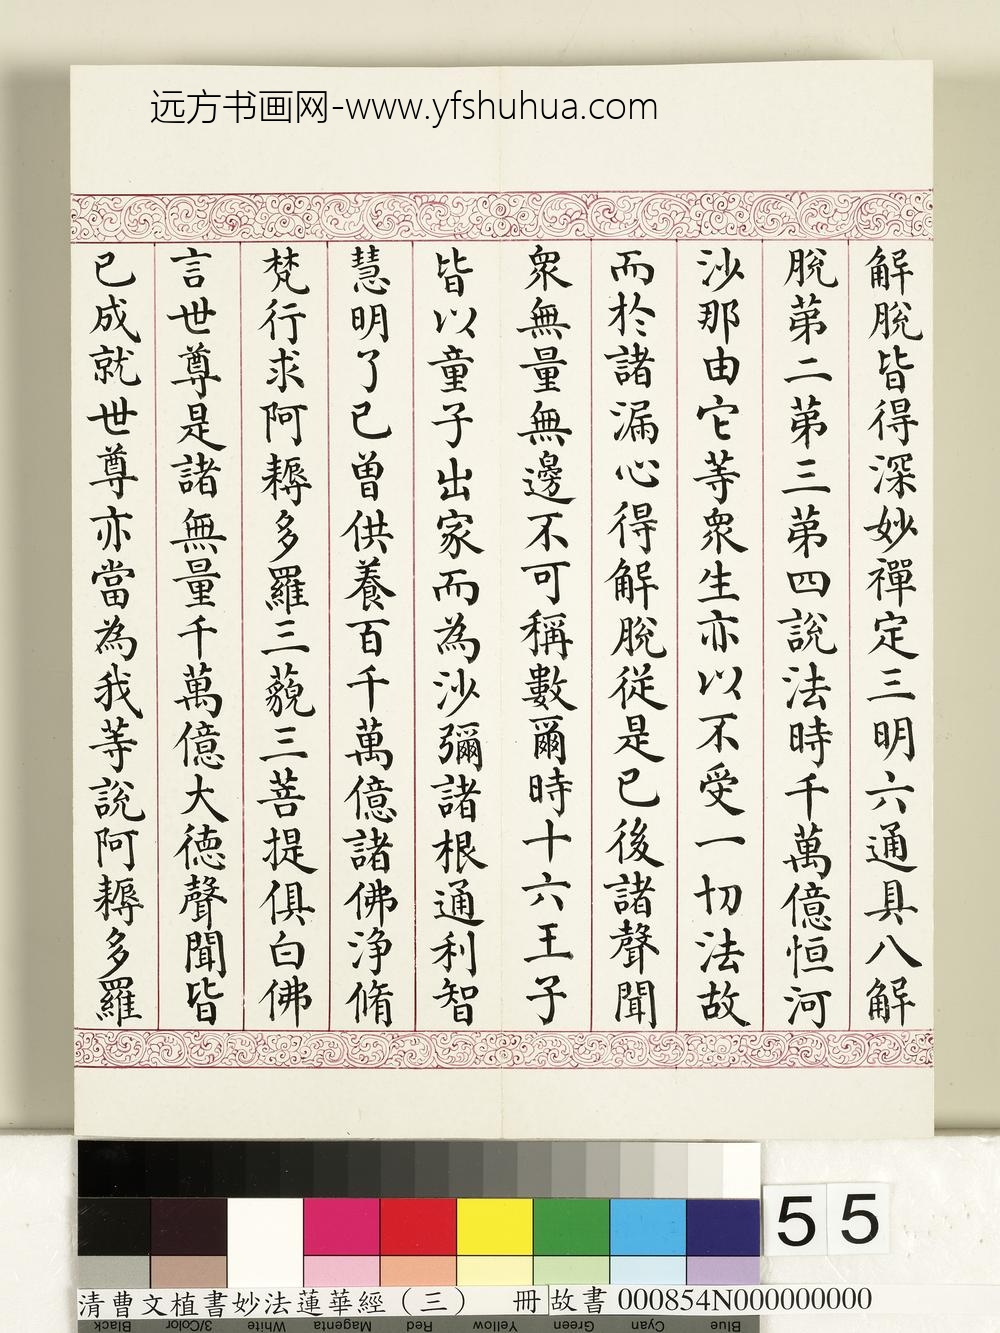 远方书画网-www.yfshuhua.com
解脫皆得深妙禪定三明六通具八解
脫第二第三第四說法時千萬億恒河
沙那由它等衆生亦以不受一切法故
而於諸漏心得解脫從是已後諸聲聞
衆無量無邊不可稱數爾時十六王子
皆以童子出家而為沙彌諸根通利智
慧明了已曾供養百千萬億諸佛淨脩
梵行求阿耨多羅三藐三菩提俱白佛
言世尊是諸無量千萬億大德聲聞皆
已成就世尊亦當為我等說阿耨多羅
55
清曹文植書妙法蓮華經（三） 冊 故書 000854N000000000
Black 3/Color White Magenta Red Yellow Green Cyan Blue